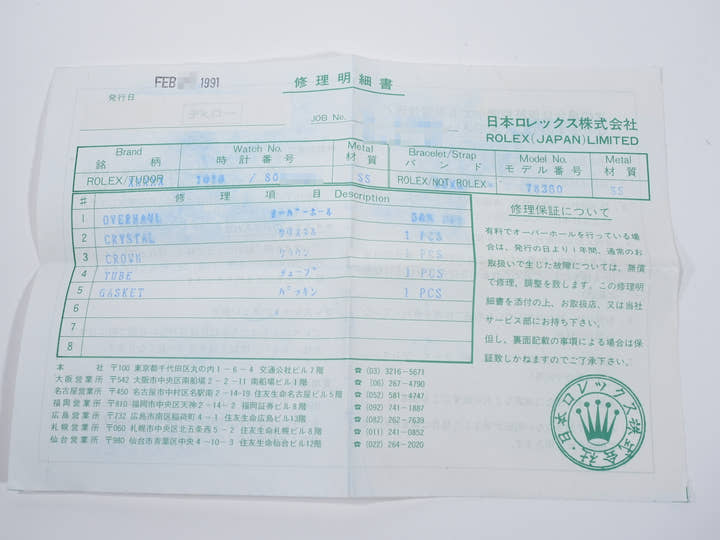 FEB 1991
修理明細書
発行日
JOB No.
日本ロレックス株式会社
ROLEX(JAPAN)LIMITED
Brand 銘柄 Watch No. 時計番号 Metal 材質 Bracelet/Strap バンド Model No. モデル番号 Metal 材質
ROLEX/TUDOR / 80 SS ROLEX/NOT ROLEX 78360 SS
# 修理項目 Description
1 OVERHAUL オーバーホール
2 CRYSTAL 1 PCS
3 CROWN 1 PCS
4 TUBE チューブ 1 PCS
5 GASKET パッキン 1 PCS
6
7
8
修理保証について
有料でオーバーホールを行っている場
合は、発行の日より1年間、通常のお
取扱いで生じた故障については、無償
で修理、調整を致します。この修理明
細書を添付の上、お取扱店、又は当社
サービス部にお持ち下さい。
但し、裏面記載の事項による場合は保
証致しかねますのでご了承下さい。
本社 〒100 東京都千代田区丸の内1-6-4 交通公社ビル7階 ☎(03) 3216-5671
大阪営業所 〒542 大阪市中央区南船場2-2-11 南船場ビル1階 ☎(06) 267-4790
名古屋営業所 〒450 名古屋市中村区名駅南2-14-19 住友生命名古屋ビル5階 ☎(052) 581-4747
福岡営業所 〒810 福岡市中央区天神2-14-2 福岡証券ビル8階 ☎(092) 741-1887
広島営業所 〒732 広島市南区稲荷町4-1 住友生命広島ビル13階 ☎(082) 262-7639
札幌営業所 〒060 札幌市中央区北五条西5-2 住友生命札幌ビル8階 ☎(011) 241-0852
仙台営業所 〒980 仙台市青葉区中央4-10-3 住友生命仙台ビル12階 ☎(022) 264-2020
日本ロレックス株式会社・